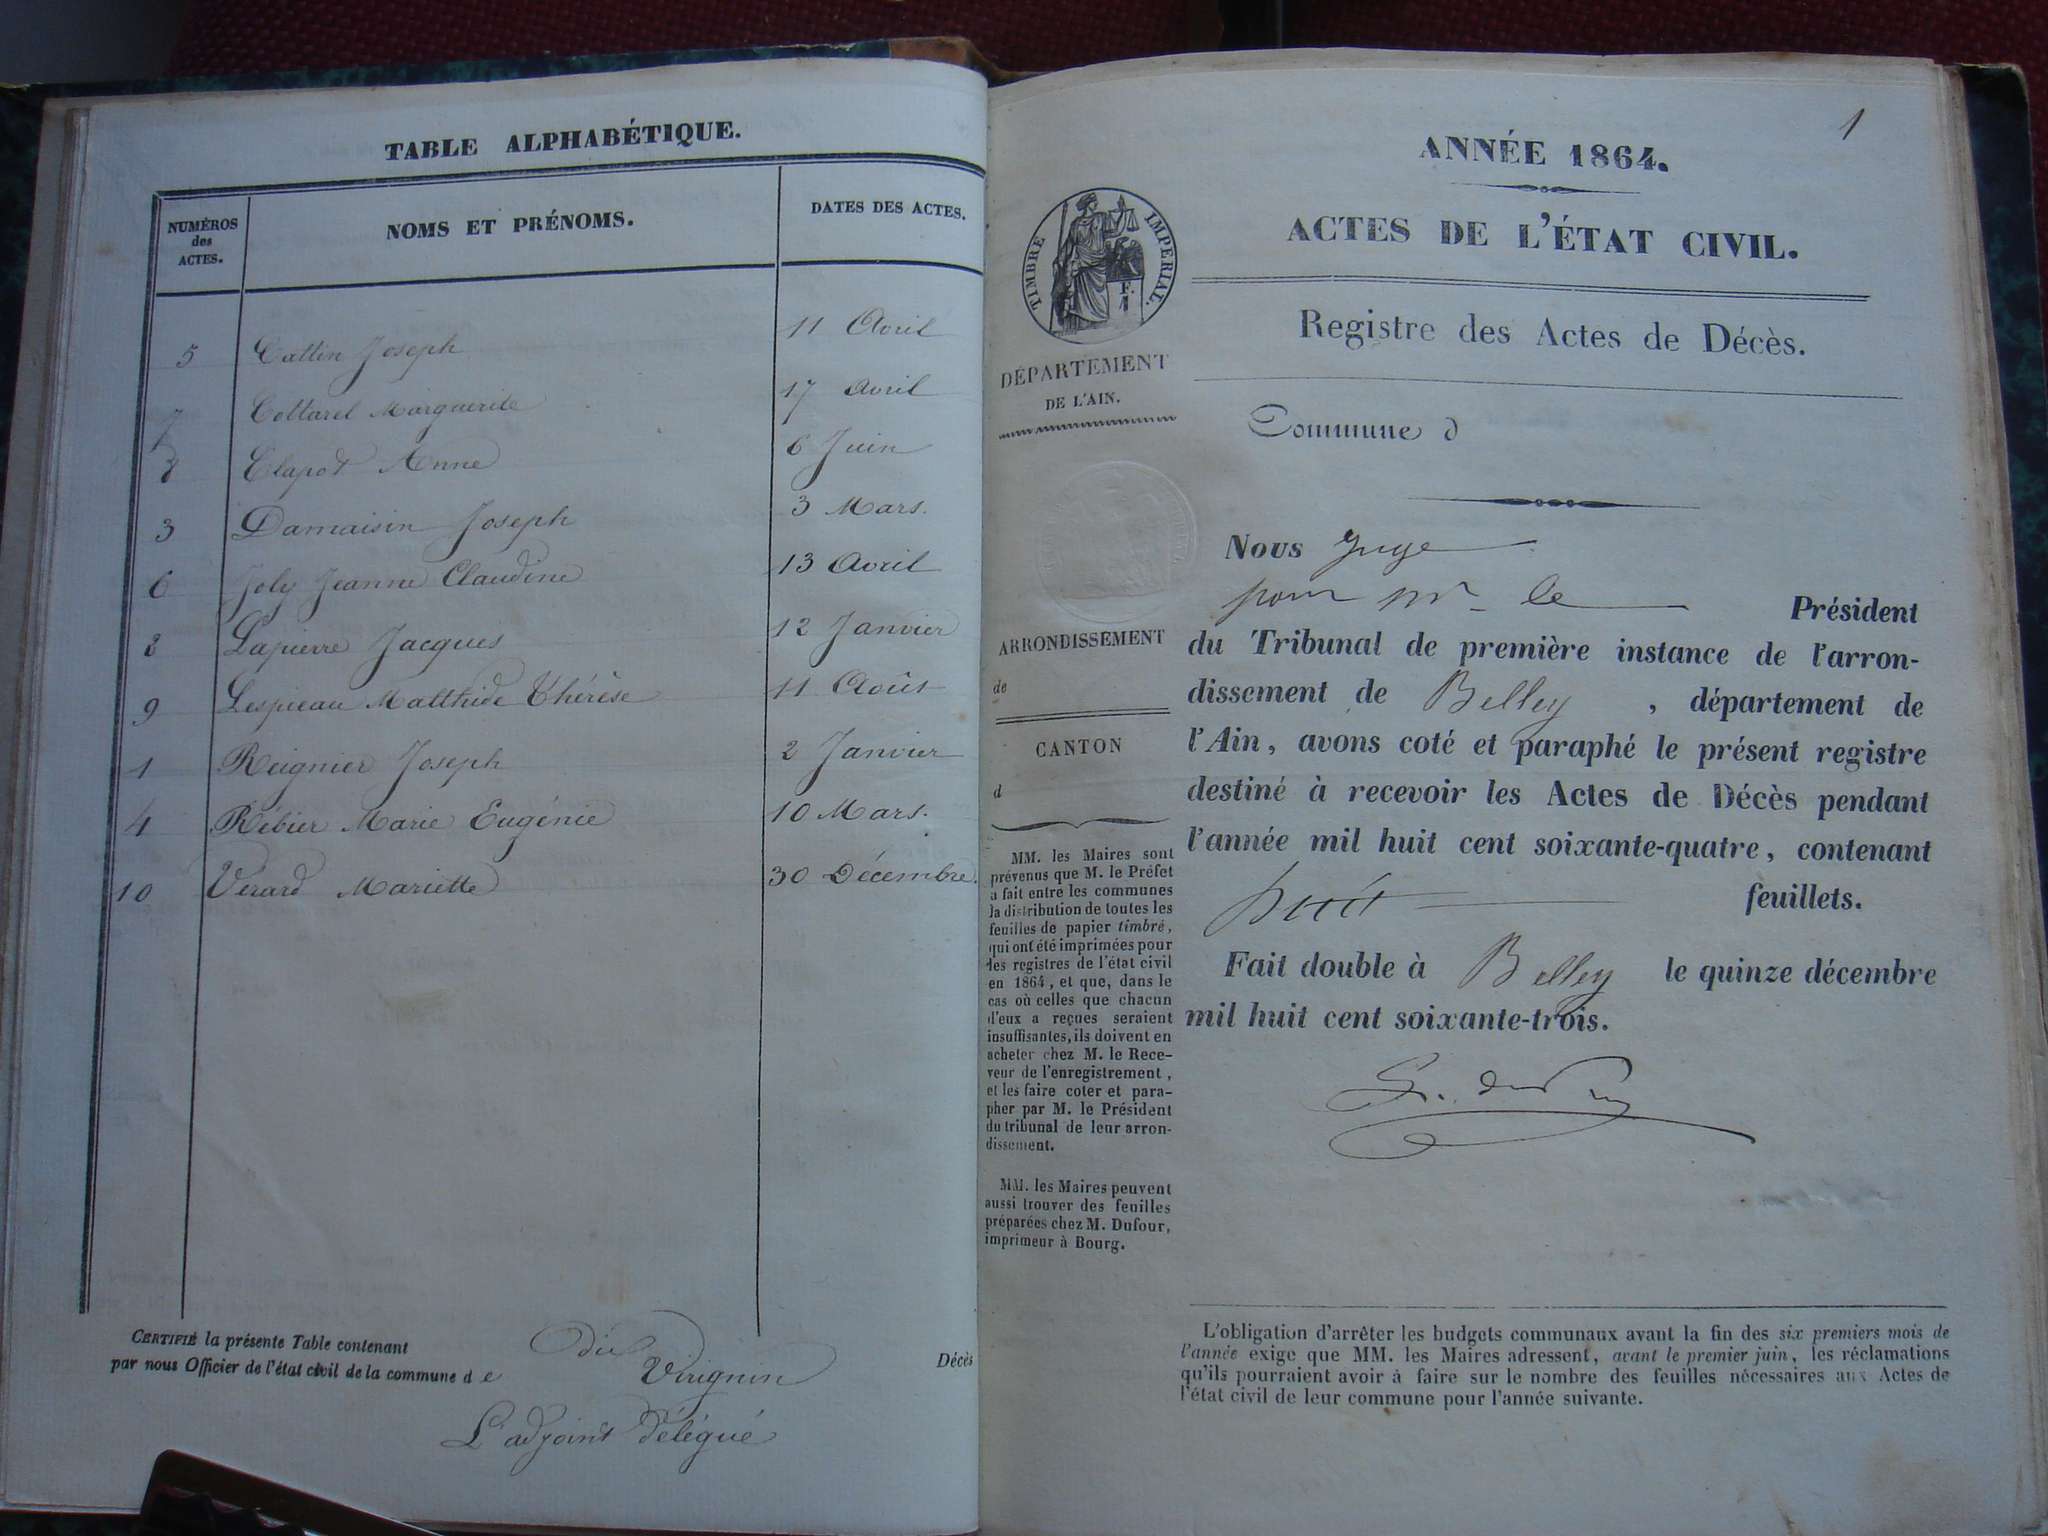 TABLE ALPHABÉTIQUE.
NUMÉROS
des
ACTES.
NOMS ET PRÉNOMS.
DATES DES ACTES.
5 Cattin Joseph 11 Avril
7 Cottarel Marguerite 17 Avril
8 Clapot Anne 6 Juin
3 Damaisin Joseph 3 Mars.
6 Joly Jeanne Claudine 13 Avril
2 Lapierre Jacques 12 Janvier
9 Lespieau Matthide Thérèse 11 Août
1 Reignier Joseph 2 Janvier
4 Rebier Marie Eugénie 10 Mars.
10 Verard Mariette 30 Décembre.
CERTIFIÉ la présente Table contenant dix Décès
par nous Officier de l'état civil de la commune de Virignin
L'adjoint délégué
1
ANNÉE 1864.
ACTES DE L'ÉTAT CIVIL.
Registre des Actes de Décès.
TIMBRE IMPÉRIAL.
F.
1
DÉPARTEMENT
DE L'AIN.
Commune d
ARRONDISSEMENT
de
CANTON
d
MM. les Maires sont
prévenus que M. le Préfet
a fait entre les communes
la distribution de toutes les
feuilles de papier timbré,
qui ont été imprimées pour
les registres de l'état civil
en 1864, et que, dans le
cas où celles que chacun
d'eux a reçues seraient
insuffisantes, ils doivent en
acheter chez M. le Rece-
veur de l'enregistrement,
et les faire coter et para-
pher par M. le Président
du tribunal de leur arron-
dissement.
MM. les Maires peuvent
aussi trouver des feuilles
préparées chez M. Dufour,
imprimeur à Bourg.
Nous Juge
pour Mr le Président
du Tribunal de première instance de l'arron-
dissement de Belley, département de
l'Ain, avons coté et paraphé le présent registre
destiné à recevoir les Actes de Décès pendant
l'année mil huit cent soixante-quatre, contenant
huit feuillets.
Fait double à Belley le quinze décembre
mil huit cent soixante-trois.
L'obligation d'arrêter les budgets communaux avant la fin des six premiers mois de
l'année exige que MM. les Maires adressent, avant le premier juin, les réclamations
qu'ils pourraient avoir à faire sur le nombre des feuilles nécessaires aux Actes de
l'état civil de leur commune pour l'année suivante.